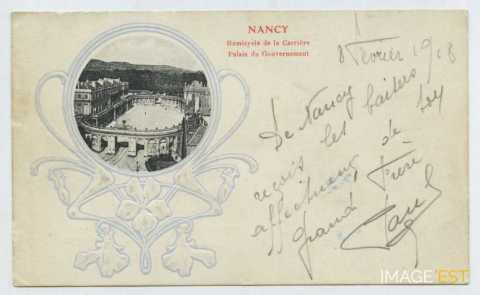 NANCY
Hemicycle de la Carrière
Palais du Gouvernement
Février 1918
De Nancy
reçois les baisers
affectueux de ton
grand Frère
Paul
IMAGE'EST